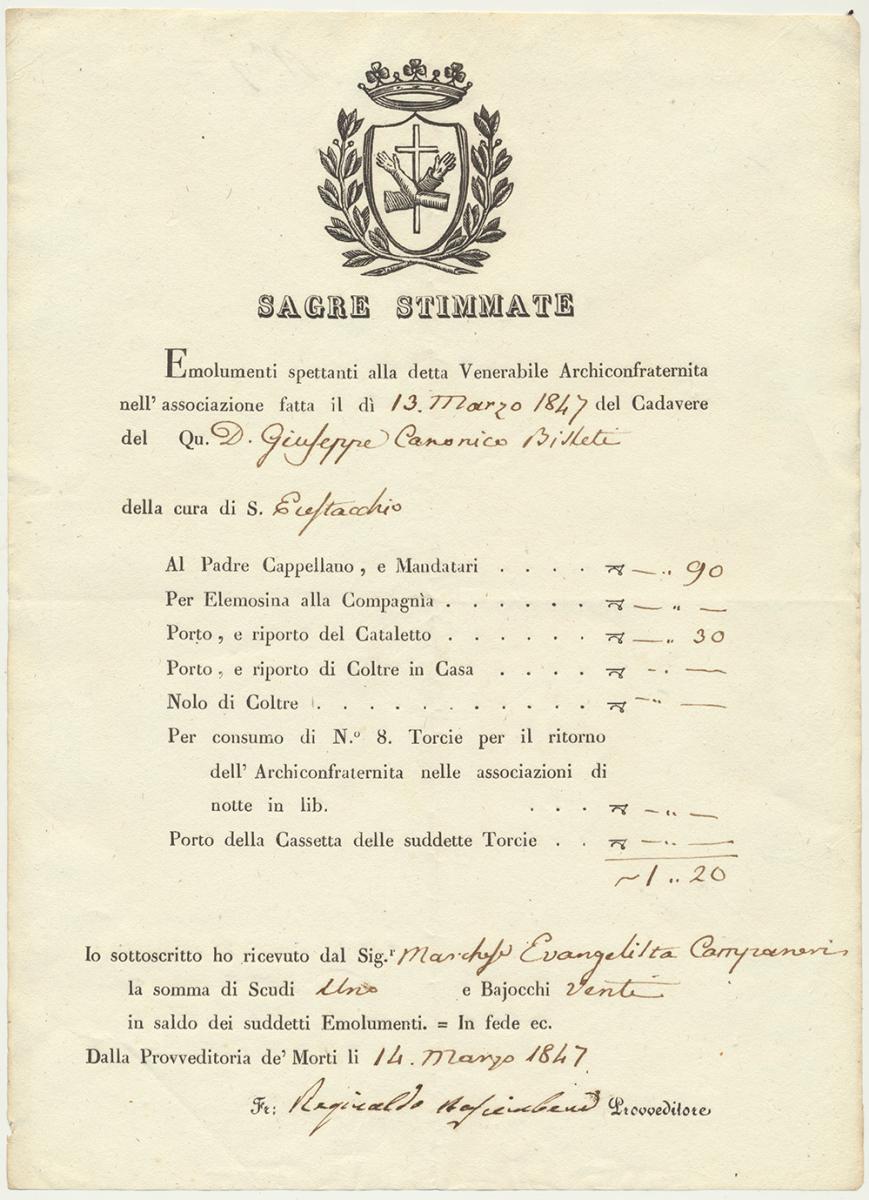 SAGRE STIMMATE
Emolumenti spettanti alla detta Venerabile Archiconfraternita
nell' associazione fatta il dì 13. Marzo 1847 del Cadavere
del Qu. D. Giuseppe Canonico
della cura di S. Eustacchio
Al Padre Cappellano, e Mandatari . . . . — „ 90
Per Elemosina alla Compagnìa . . . . . . — „ —
Porto, e riporto del Cataletto . . . . . . — „ 30
Porto, e riporto di Coltre in Casa . . . . — „ —
Nolo di Coltre . . . . . . . . . . . — „ —
Per consumo di N.º 8. Torcie per il ritorno
dell' Archiconfraternita nelle associazioni di
notte in lib. . . . — „ —
Porto della Cassetta delle suddette Torcie . . — „ —
~ 1 „ 20
Io sottoscritto ho ricevuto dal Sig.r Marchese Evangelista
la somma di Scudi Uno e Bajocchi Venti
in saldo dei suddetti Emolumenti. = In fede ec.
Dalla Provveditoria de' Morti li 14. Marzo 1847
Fr: Reginaldo Provveditore